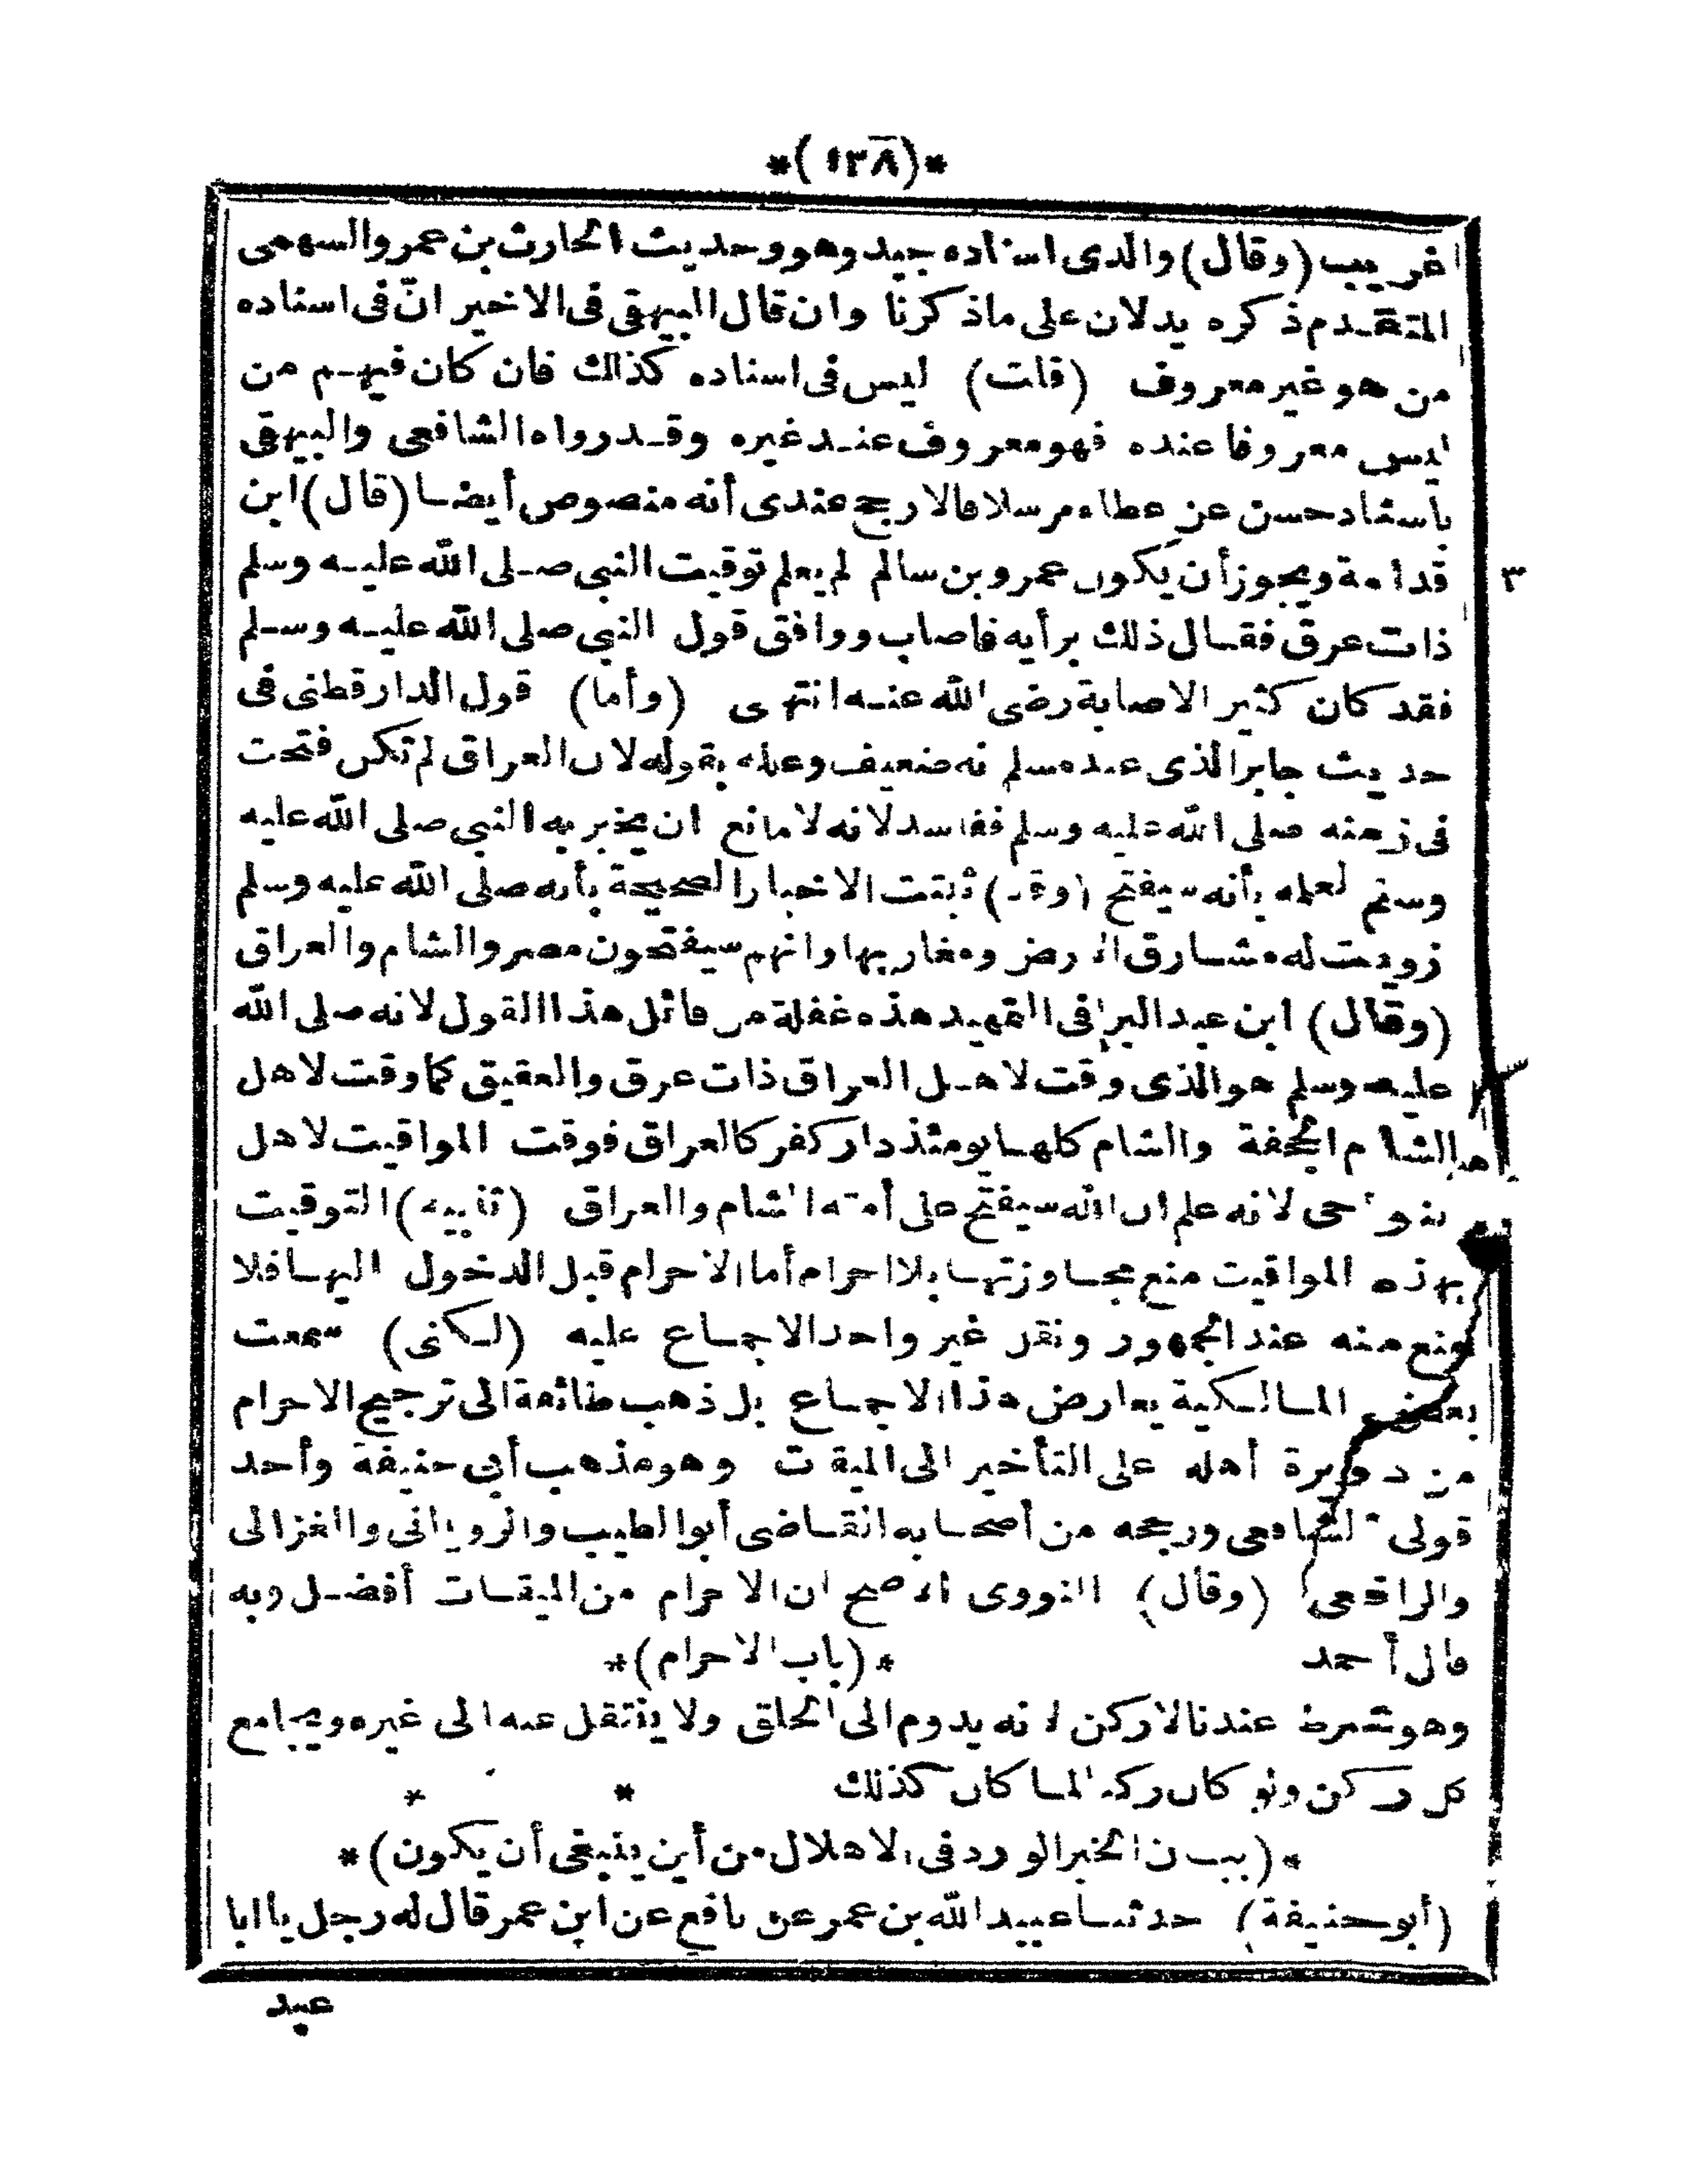 *(١٣٨)*
غريب (وقال) والذى اسناده جيد وهو وحديث الحارث بن عمرو السهمى
المتقدم ذكره يدلان على ماذكرنا وان قال البيهقى فى الاخير انّ فى اسناده
من هو غير معروف (قلت) ليس فى اسناده كذلك فان كان فيهم من
ليس معروفا عنده فهو معروف عند غيره وقد رواه الشافعى والبيهقى
باسناد حسن عن عطاء مرسلا فالارجح عندى أنه منصوص أيضا (قال) ابن
قدامة ويجوز أن يكون عمرو بن سالم لم يعلم توقيت النبى صلى الله عليه وسلم
٣
ذات عرق فقال ذلك برأيه فاصاب ووافق قول النبى صلى الله عليه وسلم
فقد كان كثير الاصابة رضى الله عنه انتهى (وأما) قول الدارقطنى فى
حديث جابر الذى عند مسلم نه ضعيف وعلله بقوله لان العراق لم تكن فتحت
فى زمنه صلى الله عليه وسلم ففاسد لانه لا مانع ان يخبر به النبى صلى الله عليه
وسلم لعلمه بأنه سيفتح (وقد) ثبتت الاخبار الصحيحة بأنه صلى الله عليه وسلم
زويت له مشارق الارض ومغاربها وانهم سيفتحون مصر والشام والعراق
(وقال) ابن عبد البر فى التمهيد هذه غفلة من قائل هذا القول لانه صلى الله
عليه وسلم هو الذى وقت لاهل العراق ذات عرق والعقيق كما وقت لاهل
الشام الجحفة والشام كلها يومئذ دار كفر كالعراق فوقت المواقيت لاهل
النواحى لانه علم ان الله سيفتح على أمته الشام والعراق (تنبيه) التوقيت
بهذه المواقيت منع مجاوزتها بلا احرام أما الاحرام قبل الدخول اليها فلا
يمنع منه عند الجمهور ونقل غير واحد الاجماع عليه (لكنى) سمعت
بعض المالكية يعارض هذا الاجماع بل ذهب طائفة الى ترجيح الاحرام
من دويرة أهله على التأخير الى الميقات وهو مذهب أبى حنيفة وأحد
قولى الشافعى ورجحه من أصحابه القاضى أبو الطيب والرويانى والغزالى
والرافعى (وقال) النووى الاصح ان الاحرام من الميقات أفضل وبه
قال أحمد *(باب الاحرام)*
وهو شرط عندنا لا ركن لانه يدوم الى الحلق ولا ينتقل عنه الى غيره ويجامع
كل ركن ولو كان ركنا لما كان كذلك * *
*(بيان الخبر الوارد فى الاهلال من أين ينبغى أن يكون)*
(أبو حنيفة) حدثنا عبيد الله بن عمر عن نافع عن ابن عمر قال له رجل يا ابا
عبد